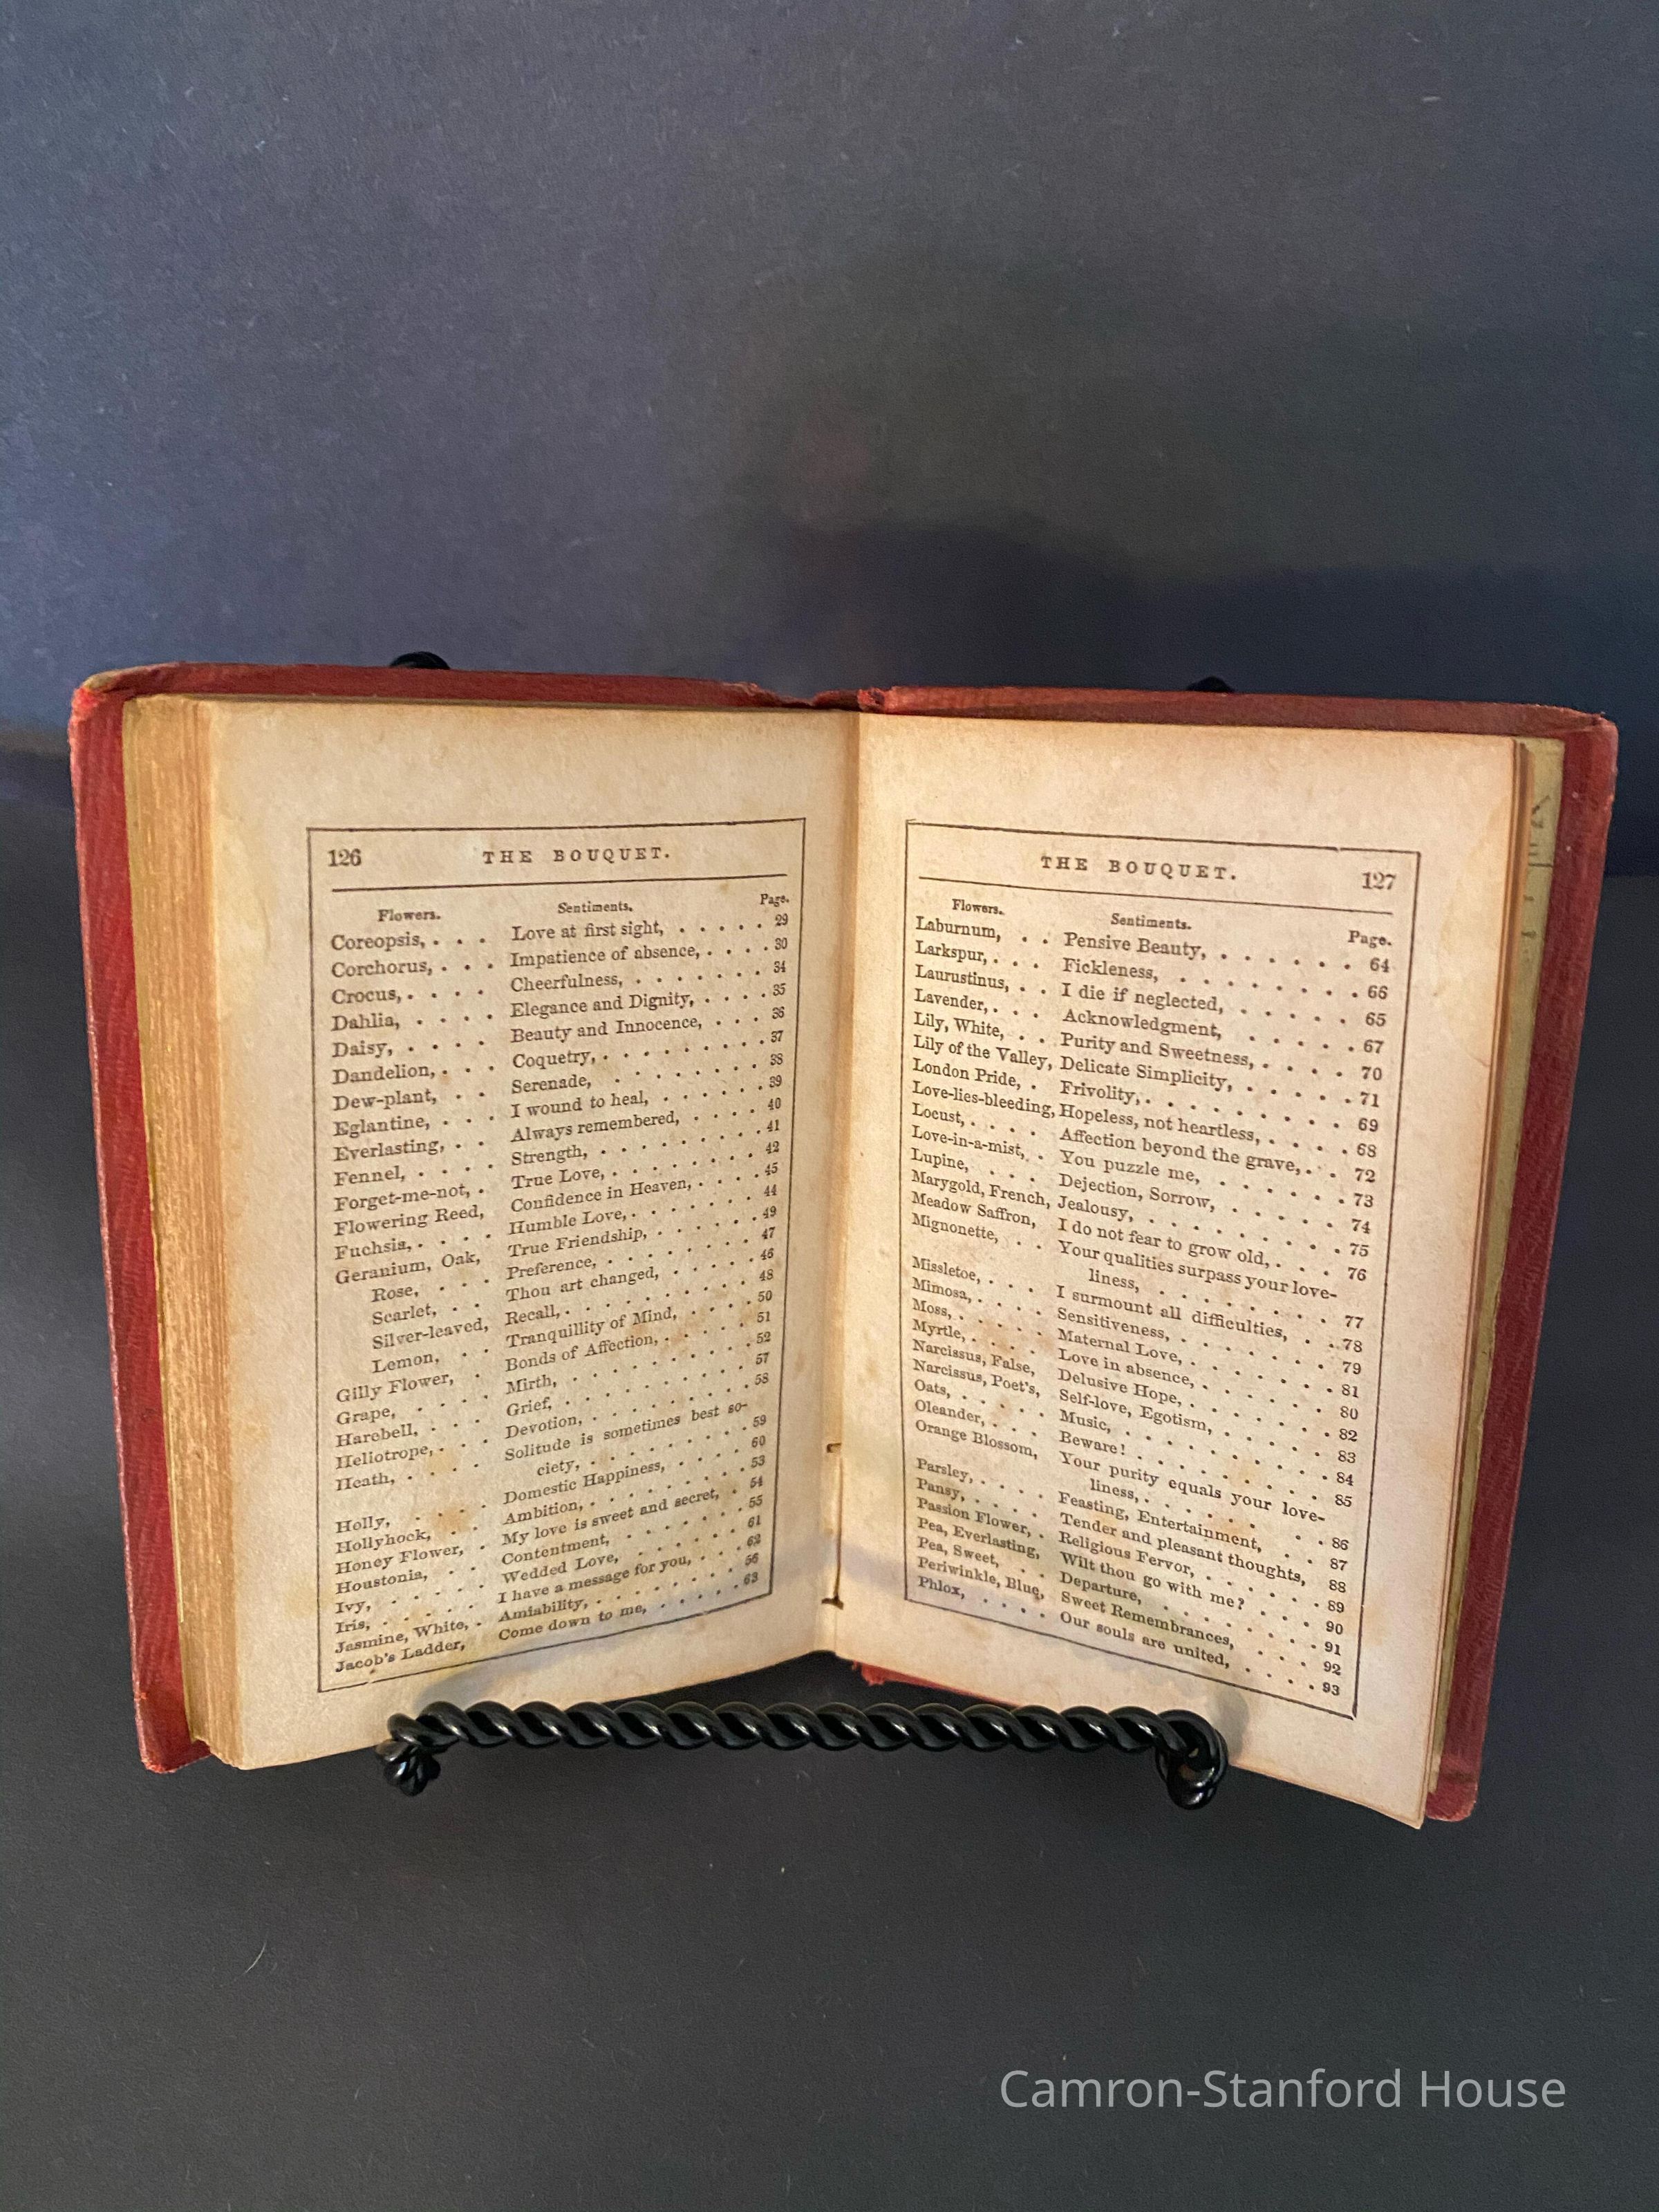 126 THE BOUQUET.
Flowers. Sentiments. Page.
Coreopsis, . . . Love at first sight, . . . . . 29
Corchorus, . . . Impatience of absence, . . . . 30
Crocus, . . . . Cheerfulness, . . . . . . . 34
Dahlia, . . . . Elegance and Dignity, . . . . 35
Daisy, . . . . Beauty and Innocence, . . . 36
Dandelion, . . . Coquetry, . . . . . . . . 37
Dew-plant, . . Serenade, . . . . . . . 38
Eglantine, . . . I wound to heal, . . . . . . 39
Everlasting, . . Always remembered, . . . . 40
Fennel, . . . . Strength, . . . . . . . . 41
Forget-me-not, . True Love, . . . . . . . . 42
Flowering Reed, Confidence in Heaven, . . . . 45
Fuchsia, . . . . Humble Love, . . . . . . 44
Geranium, Oak, True Friendship, . . . . . 49
Rose, . . . Preference, . . . . . . . 47
Scarlet, . . Thou art changed, . . . . . 46
Silver-leaved, Recall, . . . . . . . . 48
Lemon, . . Tranquillity of Mind, . . . . 50
Gilly Flower, . Bonds of Affection, . . . . . 51
Grape, . . . . Mirth, . . . . . . . . 52
Harebell, . . . Grief, . . . . . . . . 57
Heliotrope, . . . Devotion, . . . . . . . 58
Heath, . . . . Solitude is sometimes best so-
ciety, . . . . . . . . 59
Holly, . . . . Domestic Happiness, . . . . 60
Hollyhock, . . Ambition, . . . . . . . 53
Honey Flower, . My love is sweet and secret, . 54
Houstonia, . . Contentment, . . . . . . 55
Ivy, . . . . . Wedded Love, . . . . . . 61
Iris, . . . . . I have a message for you, . . . 62
Jasmine, White, . Amiability, . . . . . . . 56
Jacob's Ladder, Come down to me, . . . . . 63
THE BOUQUET. 127
Flowers. Sentiments. Page.
Laburnum, . . Pensive Beauty, . . . . . . 64
Larkspur, . . . Fickleness, . . . . . . . . 66
Laurustinus, . . I die if neglected, . . . . . 65
Lavender, . . . Acknowledgment, . . . . . 67
Lily, White, . . Purity and Sweetness, . . . . 70
Lily of the Valley, Delicate Simplicity, . . . . . 71
London Pride, . Frivolity, . . . . . . . . 69
Love-lies-bleeding, Hopeless, not heartless, . . . . 68
Locust, . . . . Affection beyond the grave, . . 72
Love-in-a-mist, . You puzzle me, . . . . . . 73
Lupine, . . . Dejection, Sorrow, . . . . . 74
Marygold, French, Jealousy, . . . . . . . . 75
Meadow Saffron, I do not fear to grow old, . . . 76
Mignonette, . . Your qualities surpass your love-
liness, . . . . . . . . 77
Missletoe, . . . I surmount all difficulties, . . 78
Mimosa, . . . . Sensitiveness, . . . . . . . 79
Moss, . . . . . Maternal Love, . . . . . . 81
Myrtle, . . . . Love in absence, . . . . . . 80
Narcissus, False, Delusive Hope, . . . . . . 82
Narcissus, Poet's, Self-love, Egotism, . . . . . 83
Oats, . . . . . Music, . . . . . . . . . 84
Oleander, . . . Beware! . . . . . . . . 85
Orange Blossom, Your purity equals your love-
liness, . . . . . . . . 86
Parsley, . . . . Feasting, Entertainment, . . 87
Pansy, . . . . Tender and pleasant thoughts, 88
Passion Flower, . Religious Fervor, . . . . . 89
Pea, Everlasting, Wilt thou go with me? . . . 90
Pea, Sweet, . . Departure, . . . . . . . 91
Periwinkle, Blue, Sweet Remembrances, . . . . 92
Phlox, . . . . Our souls are united, . . . . 93
Camron-Stanford House